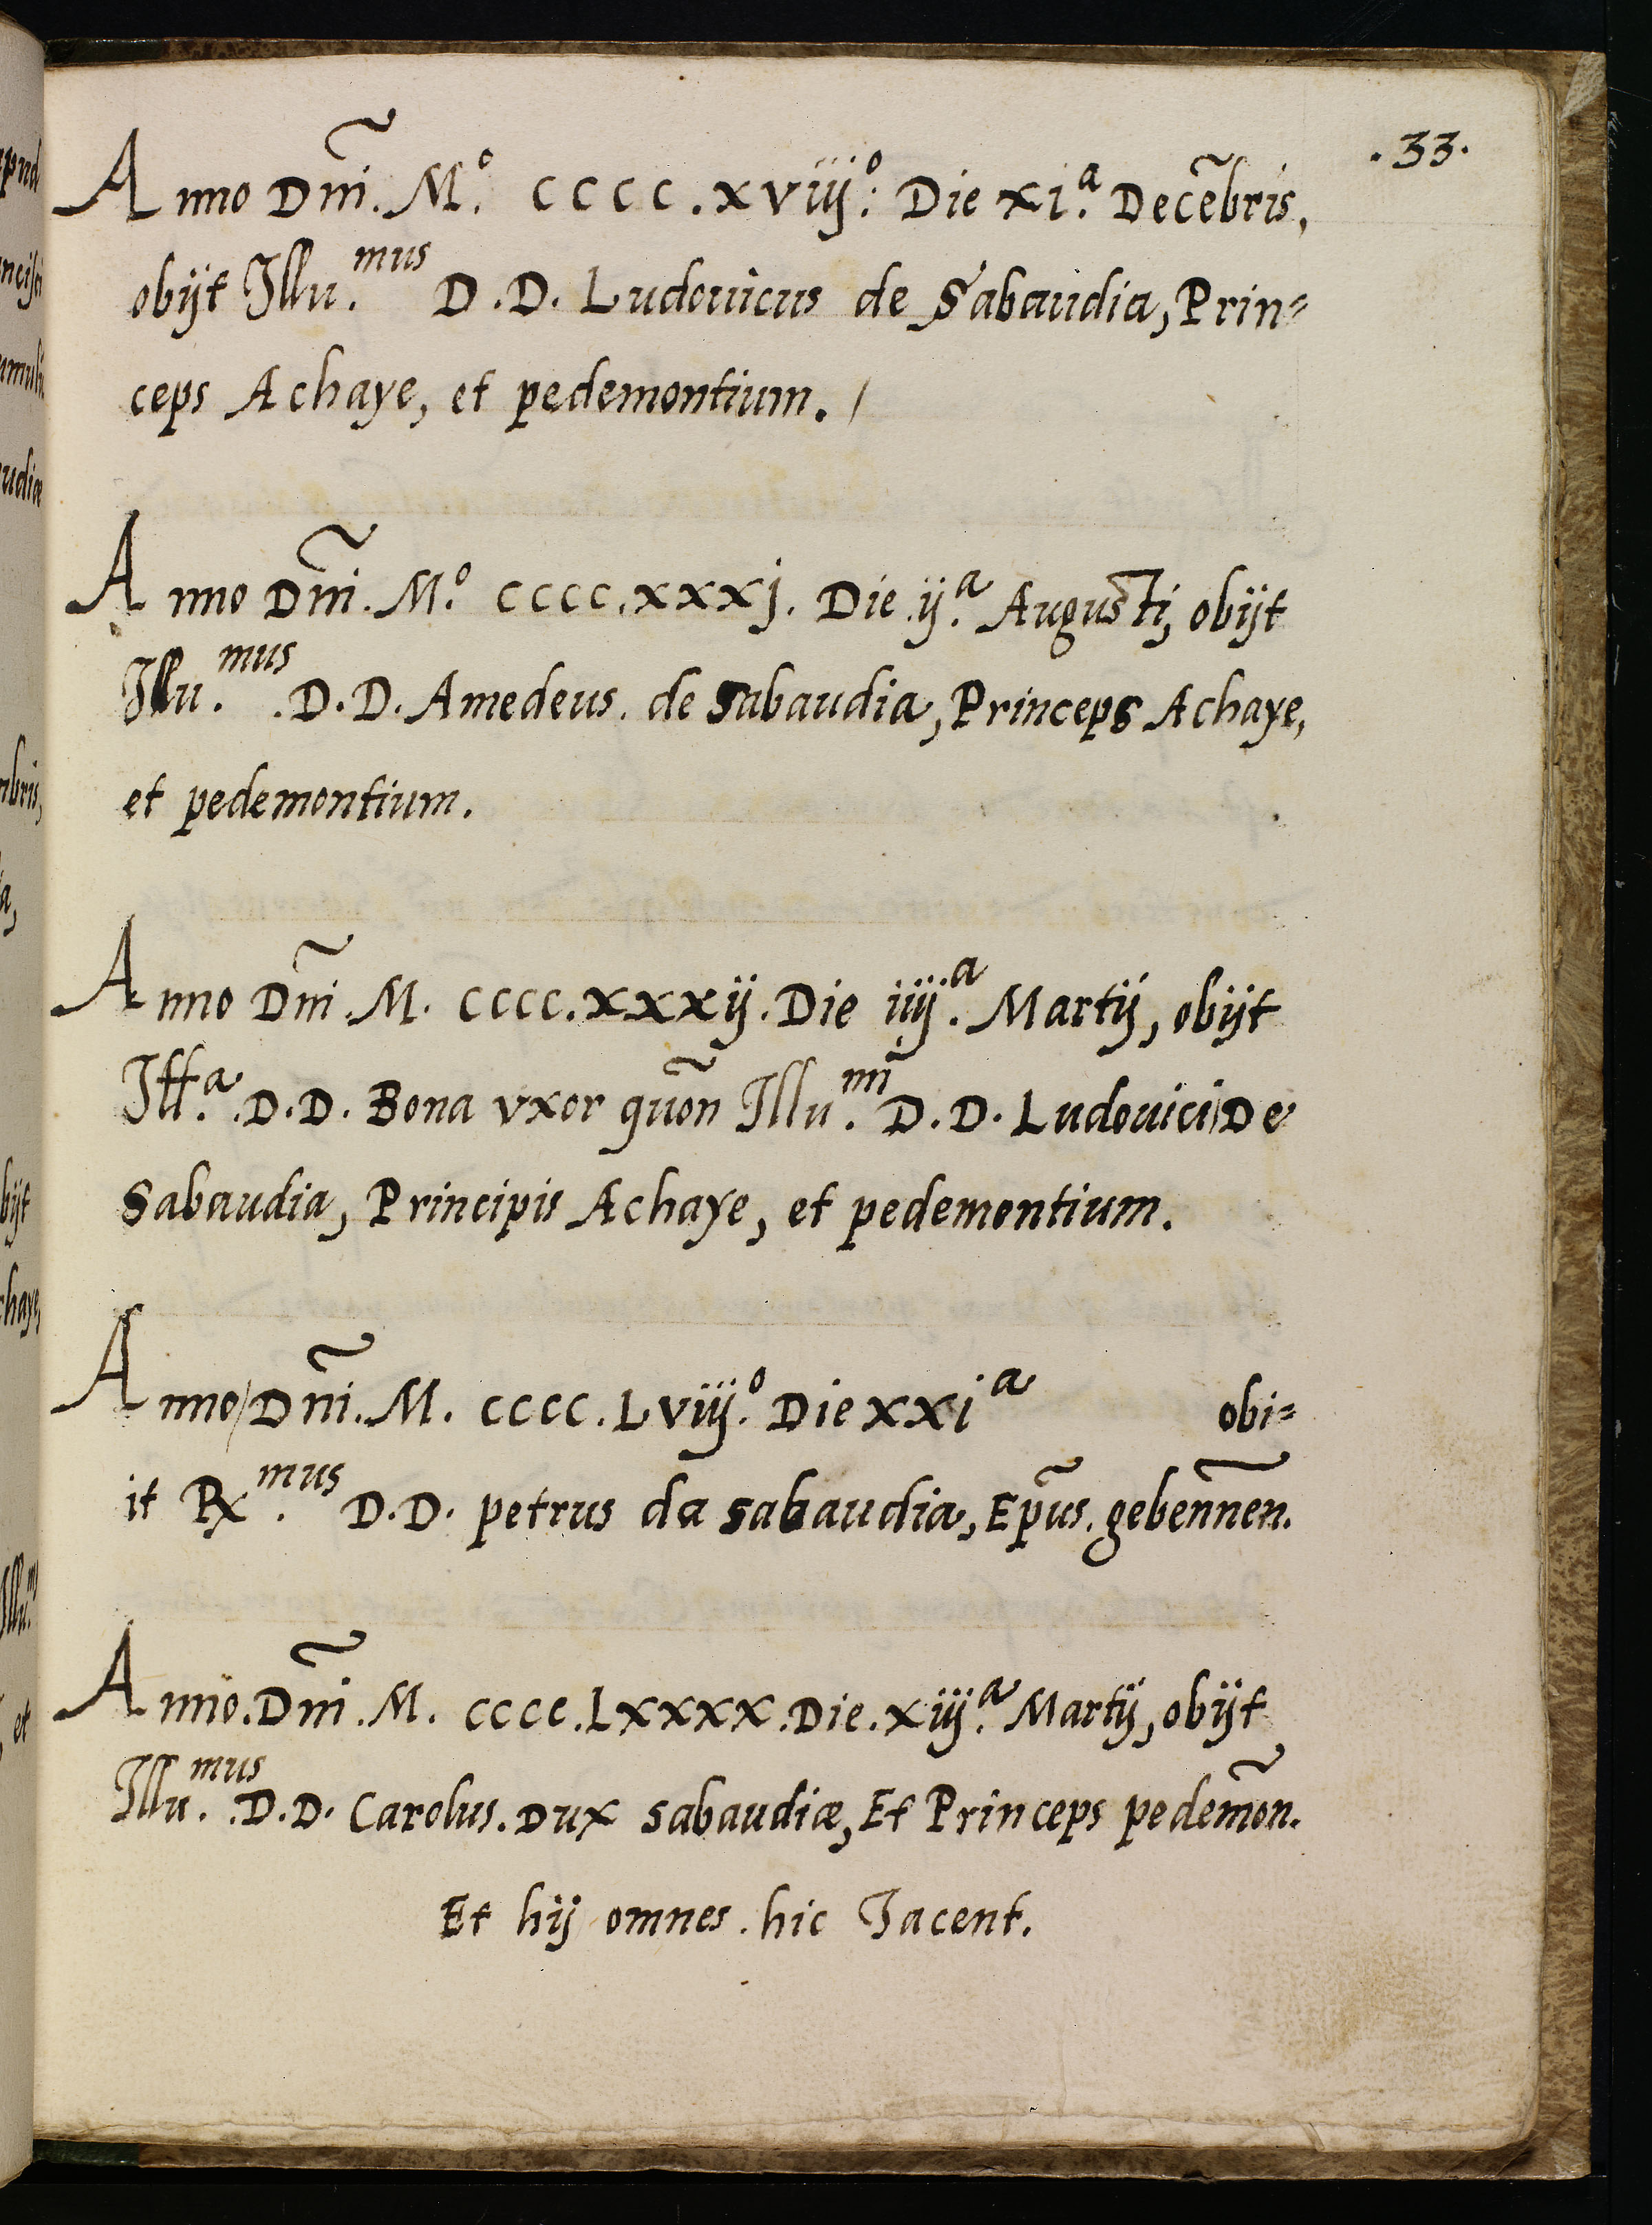 .33.
Anno Dm̃i. M.º CCCC. xviij.º Die xi.ª Decẽbris,
obijt Illu.mus D.D. Ludouicus de Sabaudia, Prin=
ceps Achaye, et pedemontium. /
Anno Dm̃i. M.º CCCC. xxxj. Die ij.ª Augusti, obijt
Illu.mus .D.D. Amedeus. de Sabaudia, Princeps Achaye,
et pedemontium.
Anno Dm̃i. M. CCCC. xxxij. Die iiij.ª Martij, obijt
Ill.ª D.D. Bona vxor quõn Illu.mi D.D. Ludouici De
Sabaudia, Principis Achaye, et pedemontium.
Anno Dñi. M. CCCC. Lviij.º Die xxiª obi=
it Rx.mus D.D. petrus da Sabaudia, Ep̃us. gebenñen.
Anno. Dm̃i. M. CCCC. Lxxxx. Die. xiij.ª Martij, obijt
Illu.mus .D.D. Carolus. Dux Sabaudiæ, Et Princeps pedemõn.
Et hij omnes. hic Jacent.